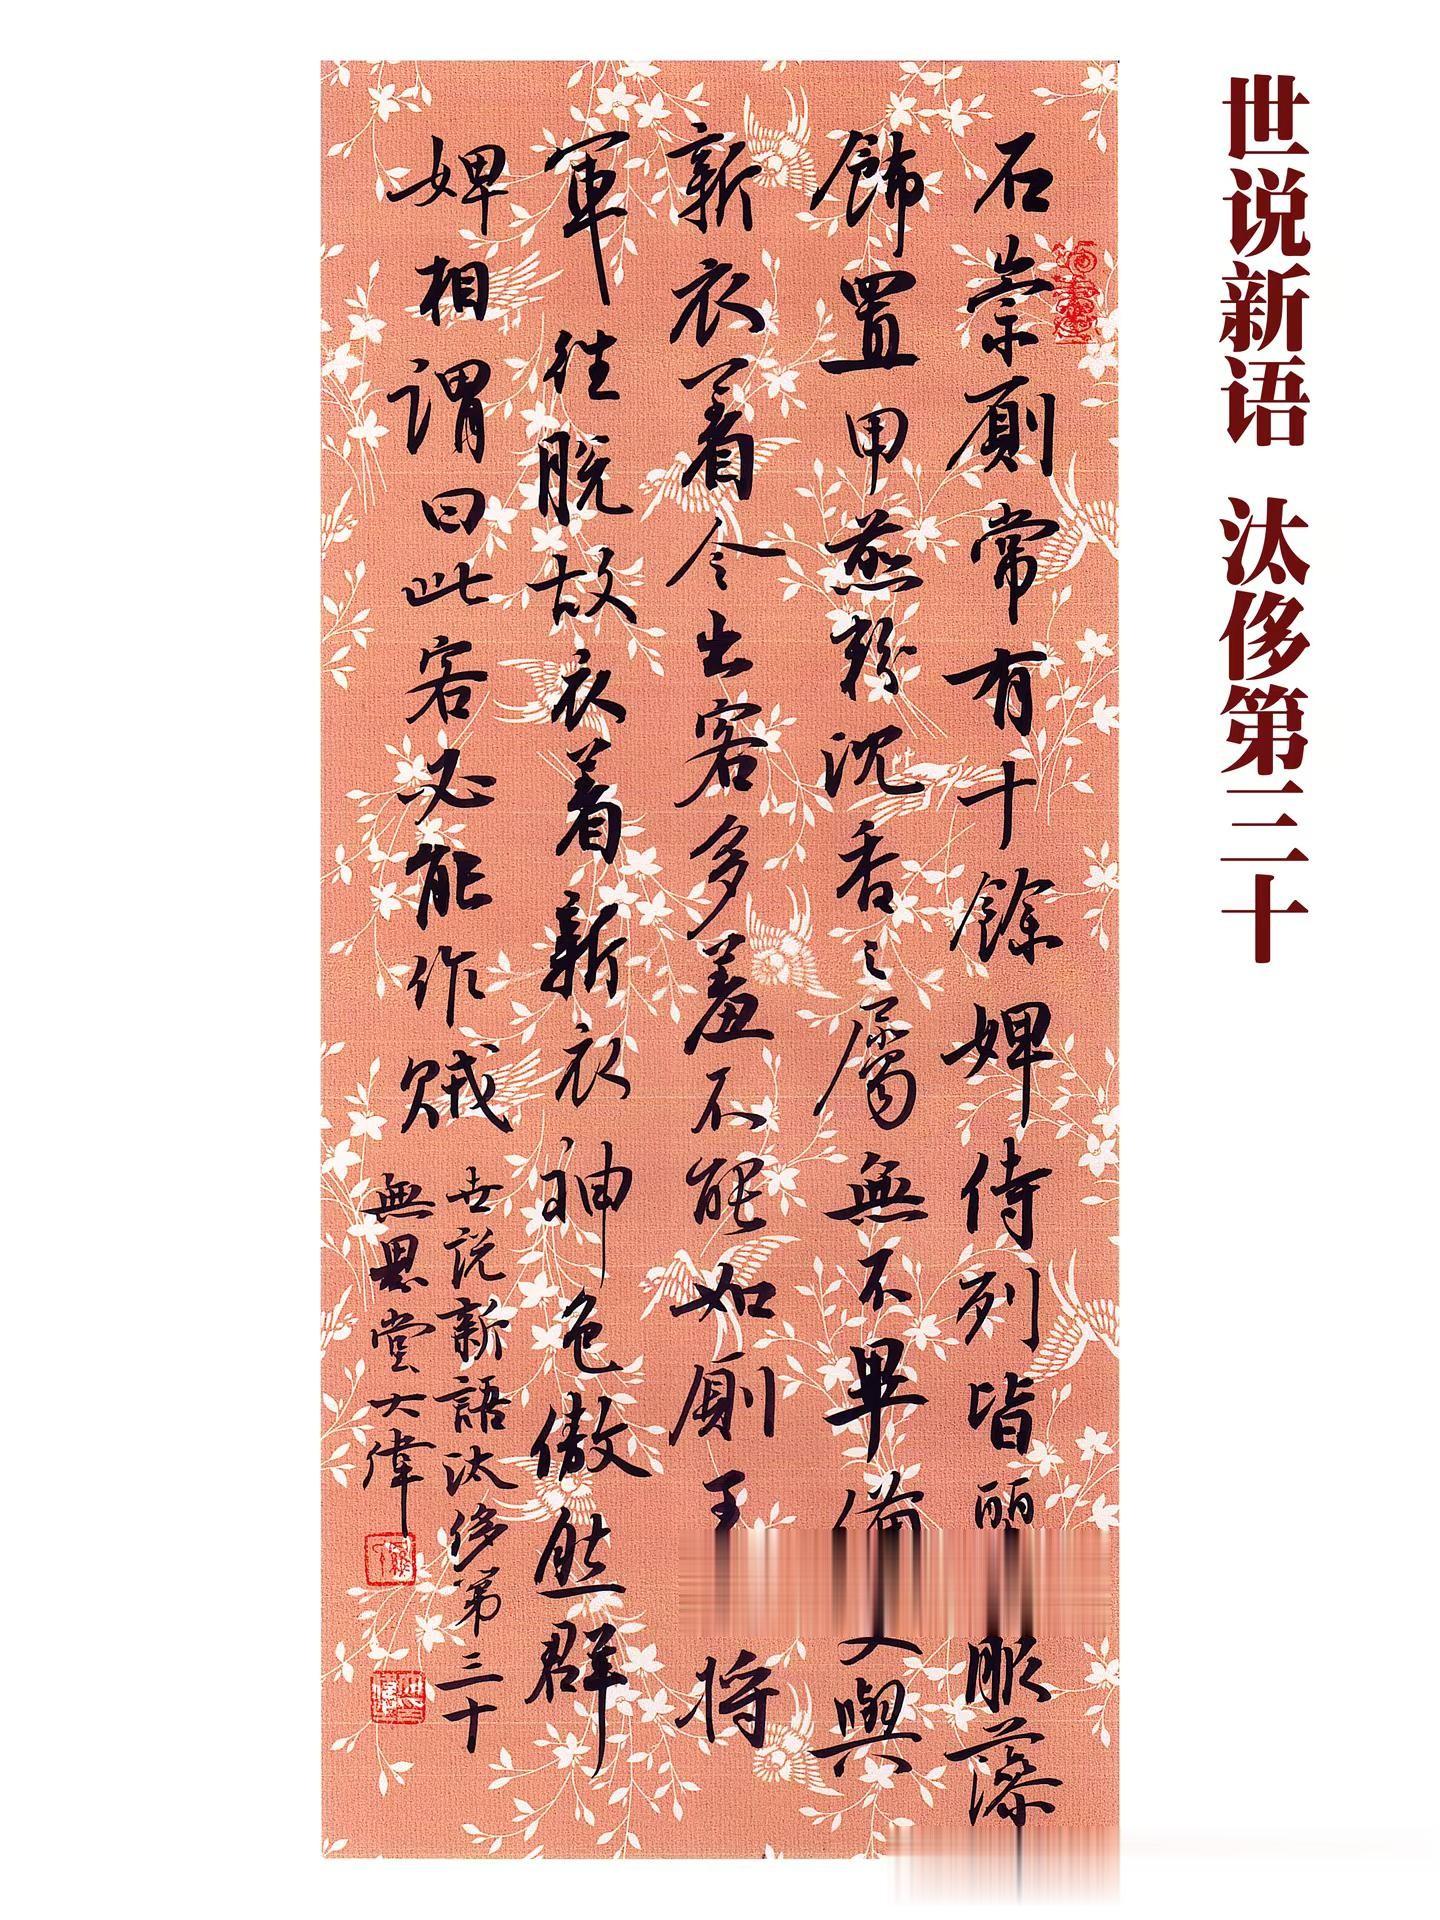 世说新语 汰侈第三十
石崇厠常有十餘婢侍列皆麗服藻
飾置甲煎粉沈香之屬無不畢備又與
新衣着令出客多羞不能如厠王將
軍往脫故衣着新衣神色傲然群
婢相謂曰此客必能作賊
世説新語汰侈第三十
無堂大偉